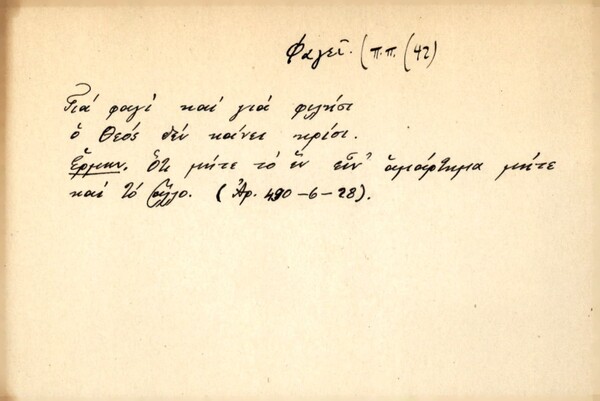 Φαγεῖ. (π.π. (42)
Γιά φαγί καί γιά φιλήσι
ὁ Θεός δέν κάνει κρίσι.
Ἑρμην. Ὅτι μήτε τό ἕν εἶν' ἁμάρτημα μήτε
καί τό ἄλλο. (Ἀρ. 490-6-28).